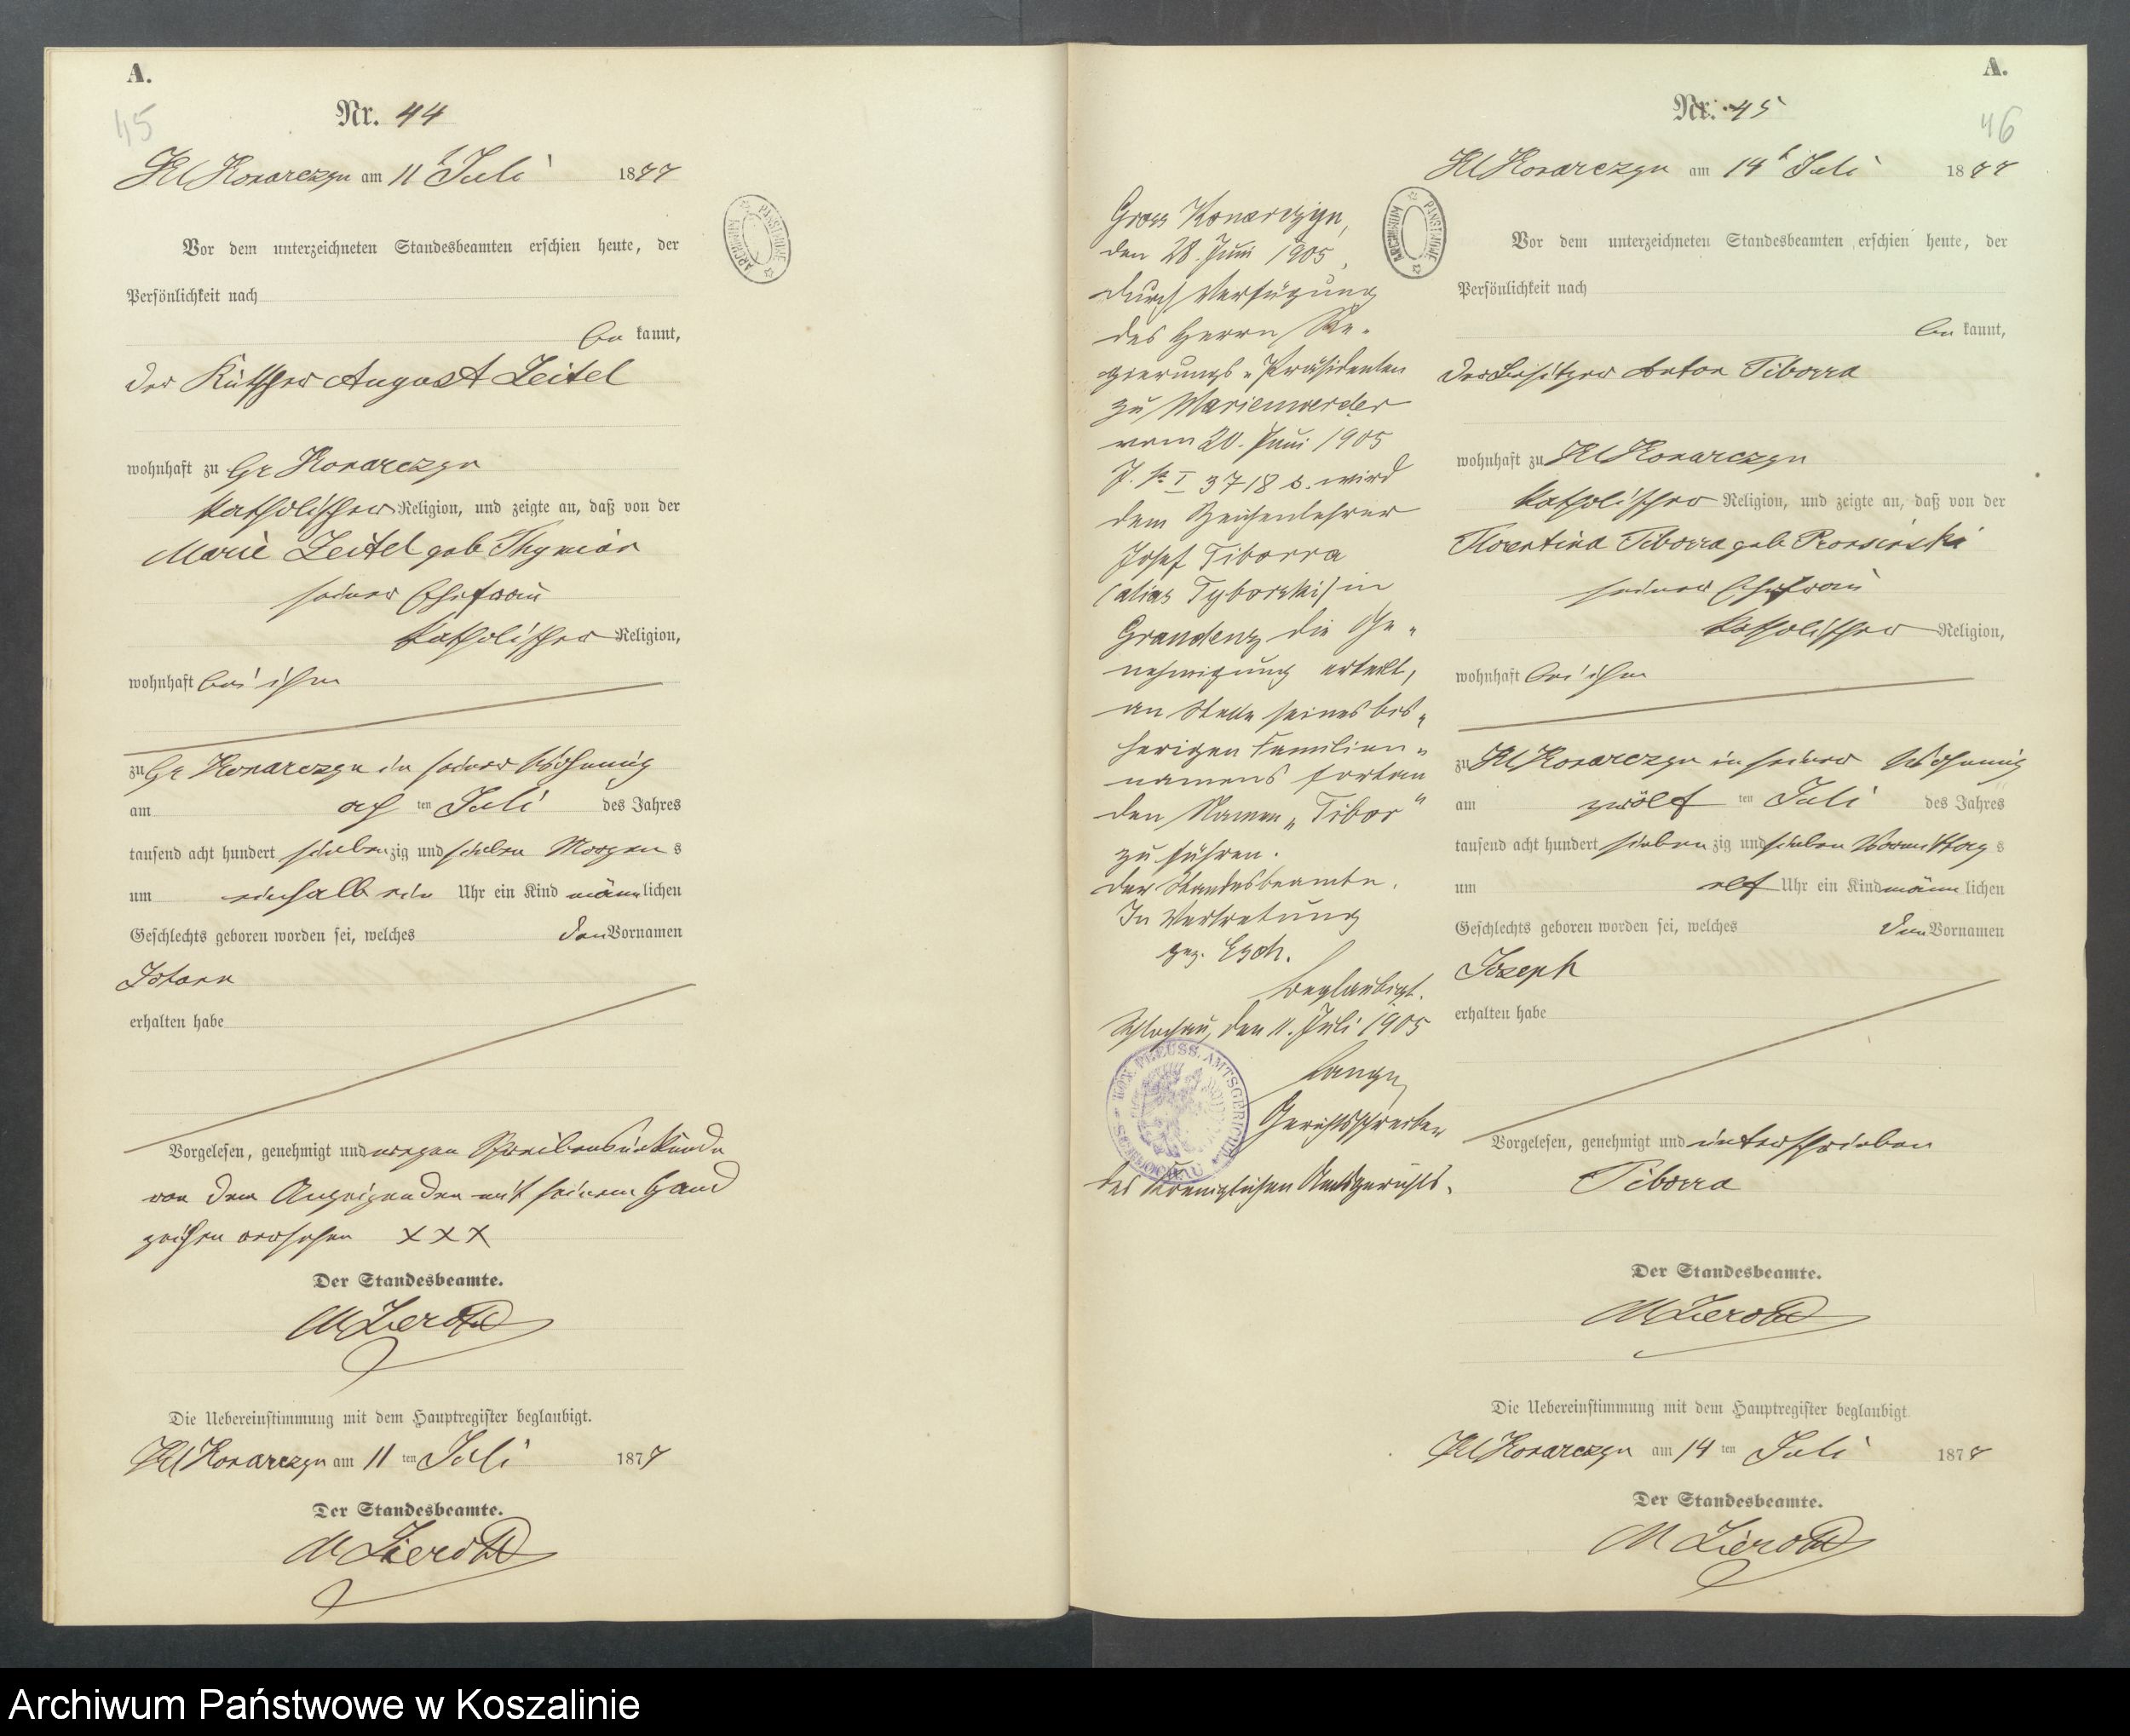 A.
45
Nr. 44
Kl Konarczyn am 11t Juli 1877
Vor dem unterzeichneten Standesbeamten erschien heute, der
Persönlichkeit nach
be kannt,
der Kutscher August Zeitel
wohnhaft zu Gr Konarczyn
katholischer Religion, und zeigte an, daß von der
Marie Zeitel geb
seiner Ehefrau
katholischer Religion,
wohnhaft bei ihm
zu Gr Konarczyn in seiner Wohnung
am ten Juli des Jahres
tausend acht hundert sieben zig und sieben Morgen s
um ein Uhr ein Kind männ lichen
Geschlechts geboren worden sei, welches den Vornamen
erhalten habe
Vorgelesen, genehmigt und wegen Schreibensunkunde
von dem Anzeigenden mit seinem Hand
zeichen versehen X X X
Der Standesbeamte.
Die Uebereinstimmung mit dem Hauptregister beglaubigt.
Kl Konarczyn am 11 ten Juli 1877
Der Standesbeamte.
ARCHIWUM PAŃSTWOWE
A.
46
Nr. 45
Kl Konarczyn am 14t Juli 1877
Vor dem unterzeichneten Standesbeamten erschien heute, der
Persönlichkeit nach
be kannt,
der Besitzer Anton Tiborra
wohnhaft zu Kl Konarczyn
katholischer Religion, und zeigte an, daß von der
Florentina Tiborra geb
seiner Ehefrau
katholischer Religion,
wohnhaft bei ihm
zu Kl Konarczyn in seiner Wohnung
am zwölf ten Juli des Jahres
tausend acht hundert sieben zig und sieben Vormittag s
um elf Uhr ein Kind männ lichen
Geschlechts geboren worden sei, welches den Vornamen
Joseph
erhalten habe
Vorgelesen, genehmigt und unterschrieben
Tiborra
Der Standesbeamte.
Die Uebereinstimmung mit dem Hauptregister beglaubigt
Kl Konarczyn am 14 ten Juli 1877
Der Standesbeamte.
ARCHIWUM PAŃSTWOWE
Gross Konarczyn,
den 28. Juni 1905,
durch Verfügung
des Herrn Re-
gierungs-Präsidenten
zu Marienwerder
vom 20. Juni 1905
3718 wird
dem Zeichenlehrer
Josef Tiborra
(alias Tyborski) in
Graudenz die Ge-
nehmigung erteilt,
an Stelle seines bis-
herigen Familien-
namens fortan
den Namen „Tibor“
zu führen.
Der Standesbeamte.
In Vertretung
gez.
Beglaubigt.
Schlochau, den 11. Juli 1905
Lange
Gerichtsschreiber
des Koeniglichen Amtsgerichts.
Archiwum Państwowe w Koszalinie